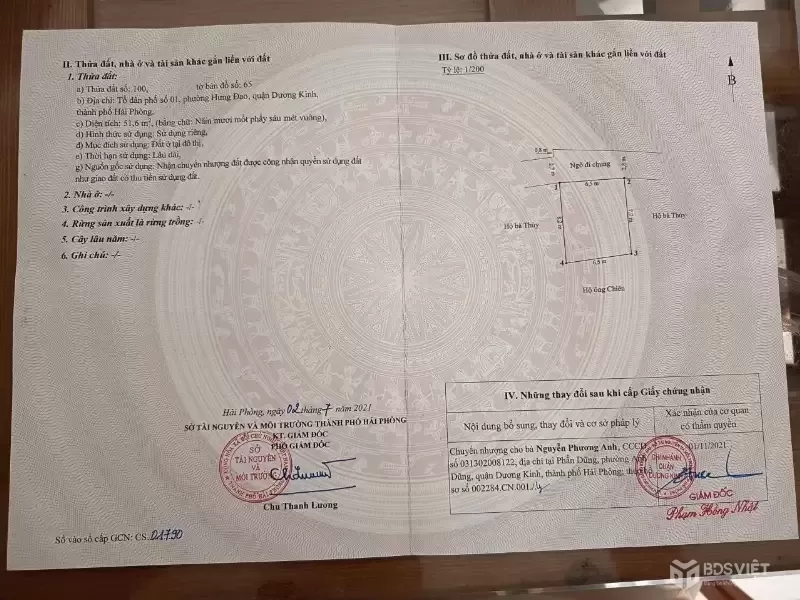 II. Thửa đất, nhà ở và tài sản khác gắn liền với đất
1. Thửa đất:
a) Thửa đất số: 100, tờ bản đồ số: 65
b) Địa chỉ: Tổ dân phố số 01, phường Hưng Đạo, quận Dương Kinh,
thành phố Hải Phòng.
c) Diện tích: 51,6 m², (bằng chữ: Năm mươi mốt phẩy sáu mét vuông),
d) Hình thức sử dụng: Sử dụng riêng,
đ) Mục đích sử dụng: Đất ở tại đô thị,
e) Thời hạn sử dụng: Lâu dài,
g) Nguồn gốc sử dụng: Nhận chuyển nhượng đất được công nhận quyền sử dụng đất
như giao đất có thu tiền sử dụng đất.
2. Nhà ở: -/-
3. Công trình xây dựng khác: -/-
4. Rừng sản xuất là rừng trồng: -/-
5. Cây lâu năm: -/-
6. Ghi chú: -/-
Hải Phòng, ngày 02 tháng 7 năm 2021
SỞ TÀI NGUYÊN VÀ MÔI TRƯỜNG THÀNH PHỐ HẢI PHÒNG
KT. GIÁM ĐỐC
PHÓ GIÁM ĐỐC
SỞ
TÀI NGUYÊN
VÀ
MÔI TRƯỜNG
Chu Thanh Lương
Số vào sổ cấp GCN: CS 01790
III. Sơ đồ thửa đất, nhà ở và tài sản khác gắn liền với đất
Tỷ lệ: 1/200
B
Ngõ đi chung
1
6,5 m
2
Hộ bà Thúy
Hộ bà Thúy
4
6,5 m
3
Hộ ông Chiên
IV. Những thay đổi sau khi cấp Giấy chứng nhận
Nội dung bổ sung, thay đổi và cơ sở pháp lý
Xác nhận của cơ quan
có thẩm quyền
Chuyển nhượng cho bà Nguyễn Phương Anh, CCCD
số 031302008122, địa chỉ tại Phấn Dũng, phường Anh
Dũng, quận Dương Kinh, thành phố Hải Phòng; theo hồ
sơ số 002284.CN.001./.
01/11/2021
CHI NHÁNH
QUẬN
DƯƠNG KINH
GIÁM ĐỐC
Phạm Hồng Nhật
BDSVIỆT